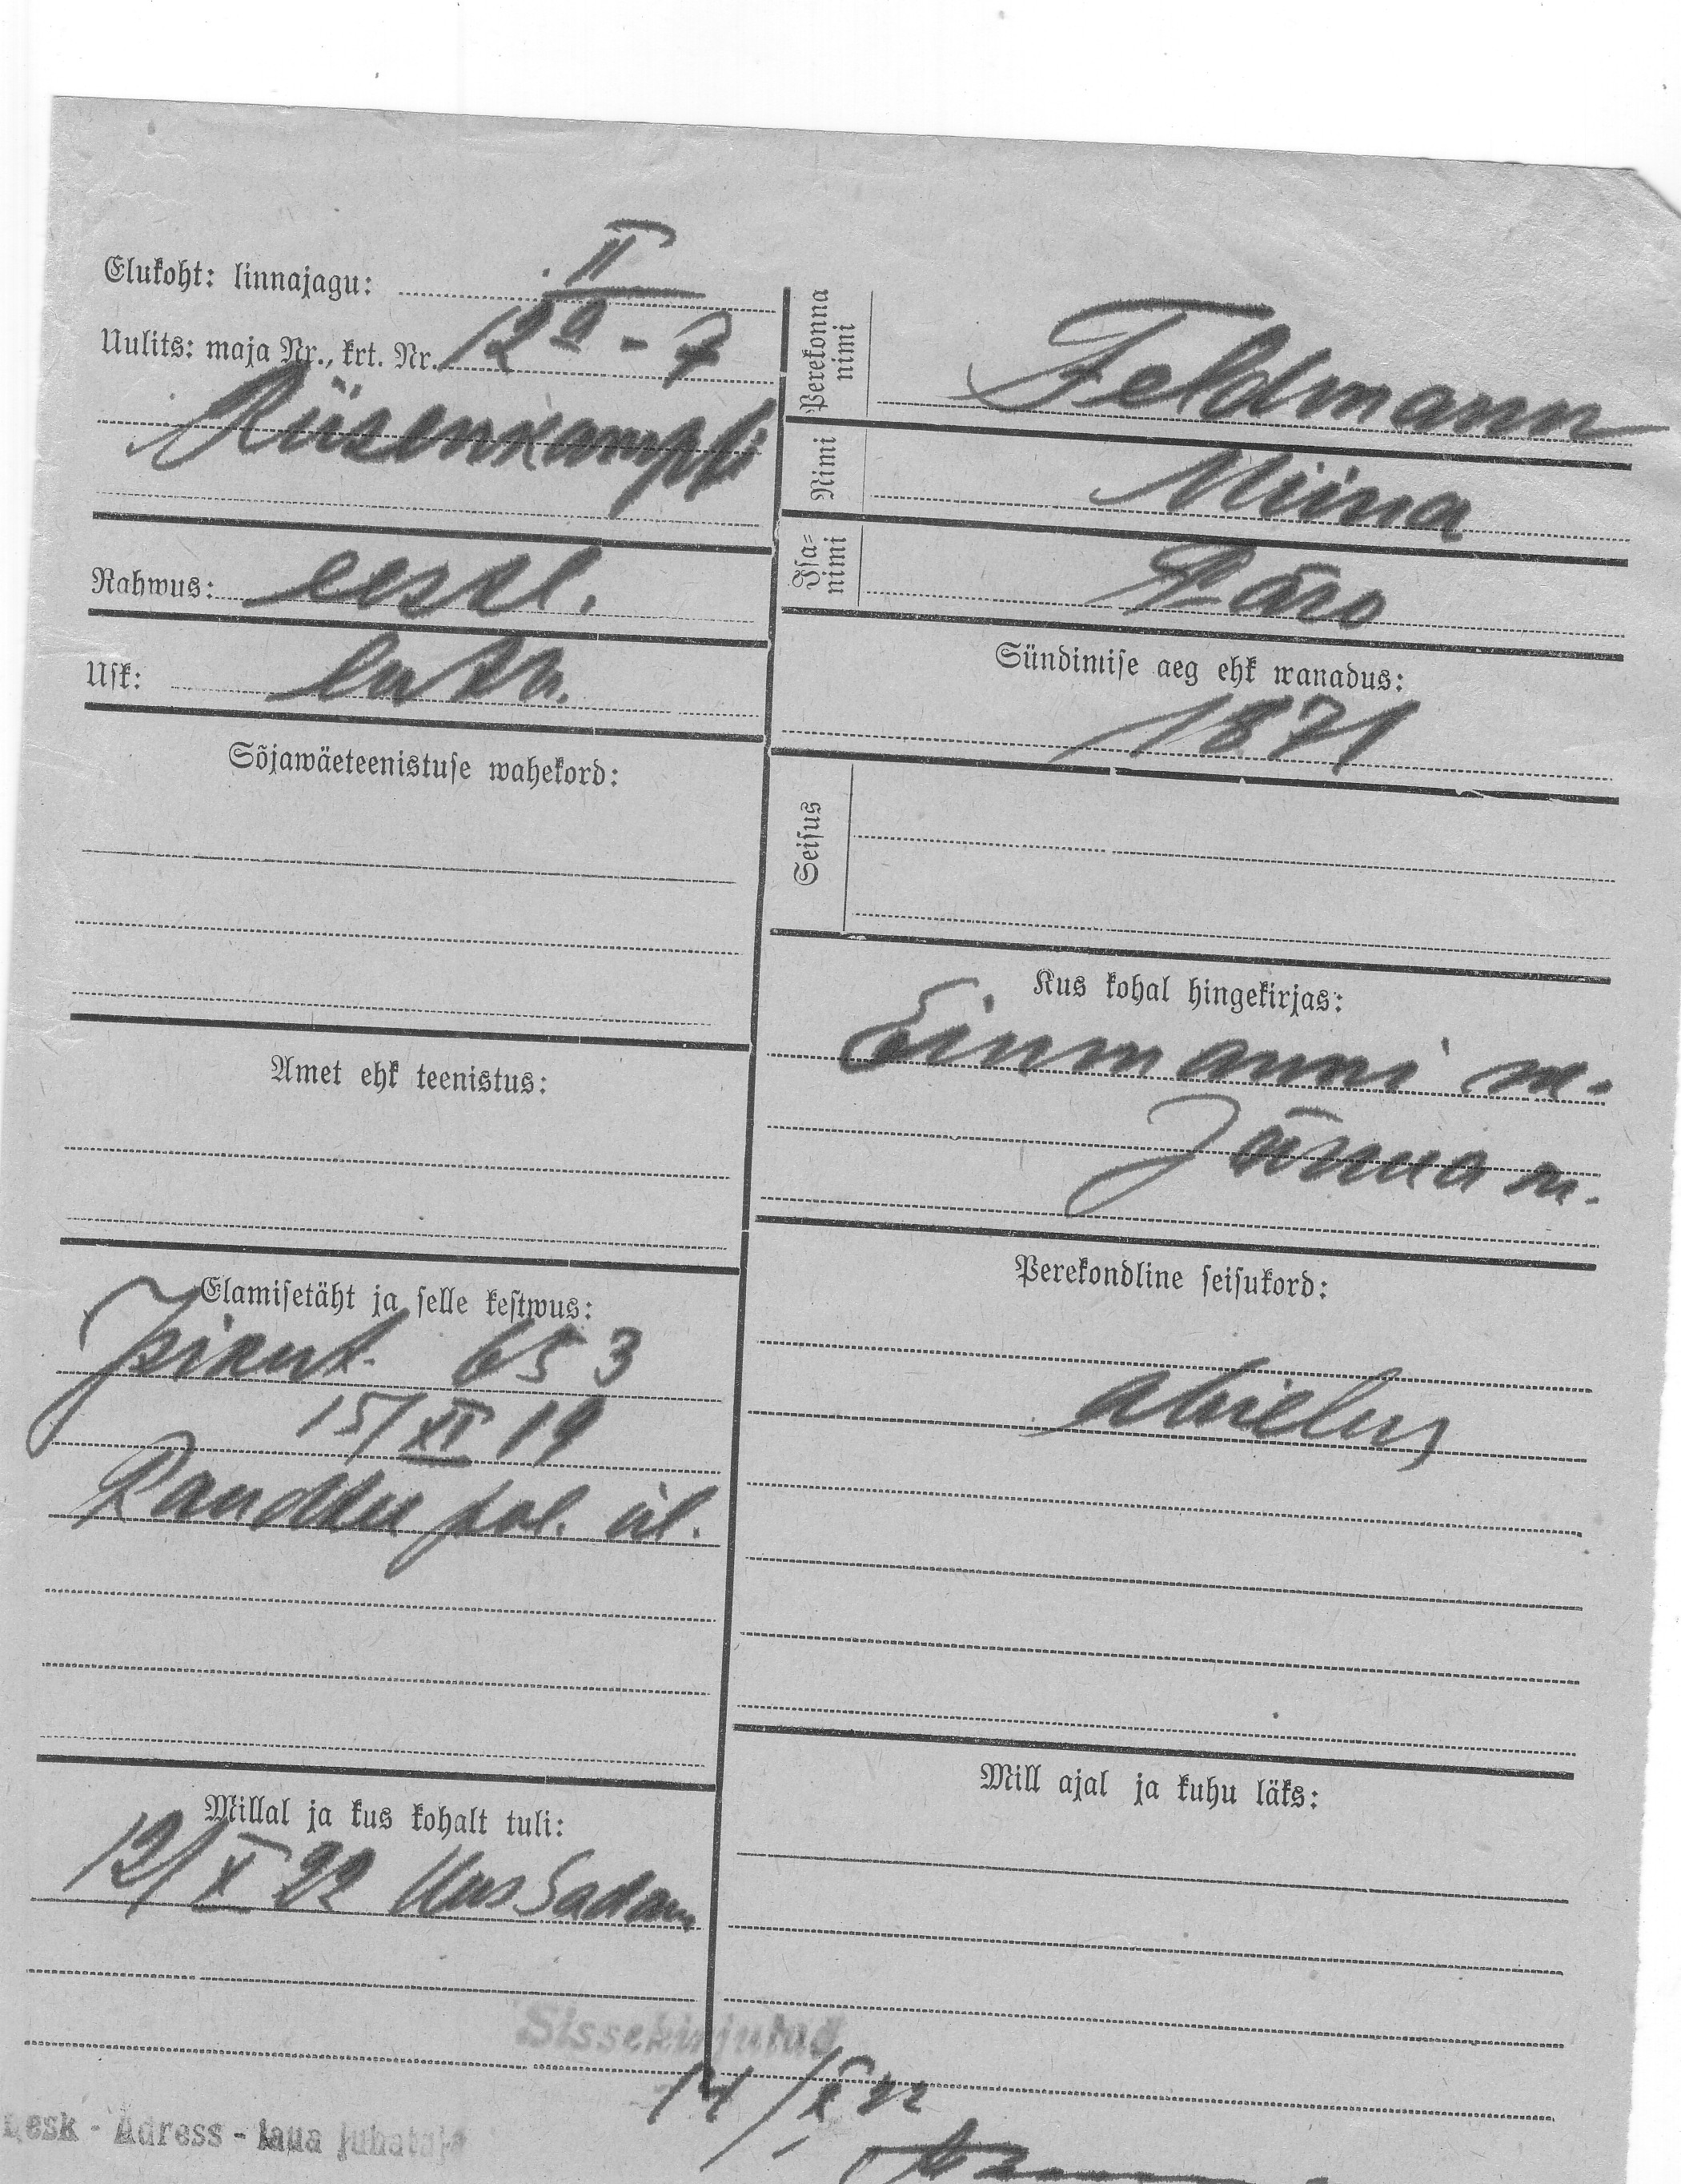 Elukoht: linnajagu: II
Uulits: maja Nr., krt. Nr. 12a - 7
Rüsenkampfi
Rahwus: eestl.
Usk: luth.
Sõjawäeteenistuse wahekord:
Amet ehk teenistus:
Elamisetäht ja selle kestwus:
653
15/XI 19
pol. ül.
Millal ja kus kohalt tuli:
12/X 22 Uus Sadam
Perekonna nimi
Feldmann
Nimi
Miina
Isa-nimi
Sündimise aeg ehk wanadus:
1871
Seisus
Kus kohal hingekirjas:
Einmanni w.
Järwa m.
Perekondline seisukord:
abielus
Mill ajal ja kuhu läks:
Sissekirjutad
14/X 22
esk - Adress - laua juhataja